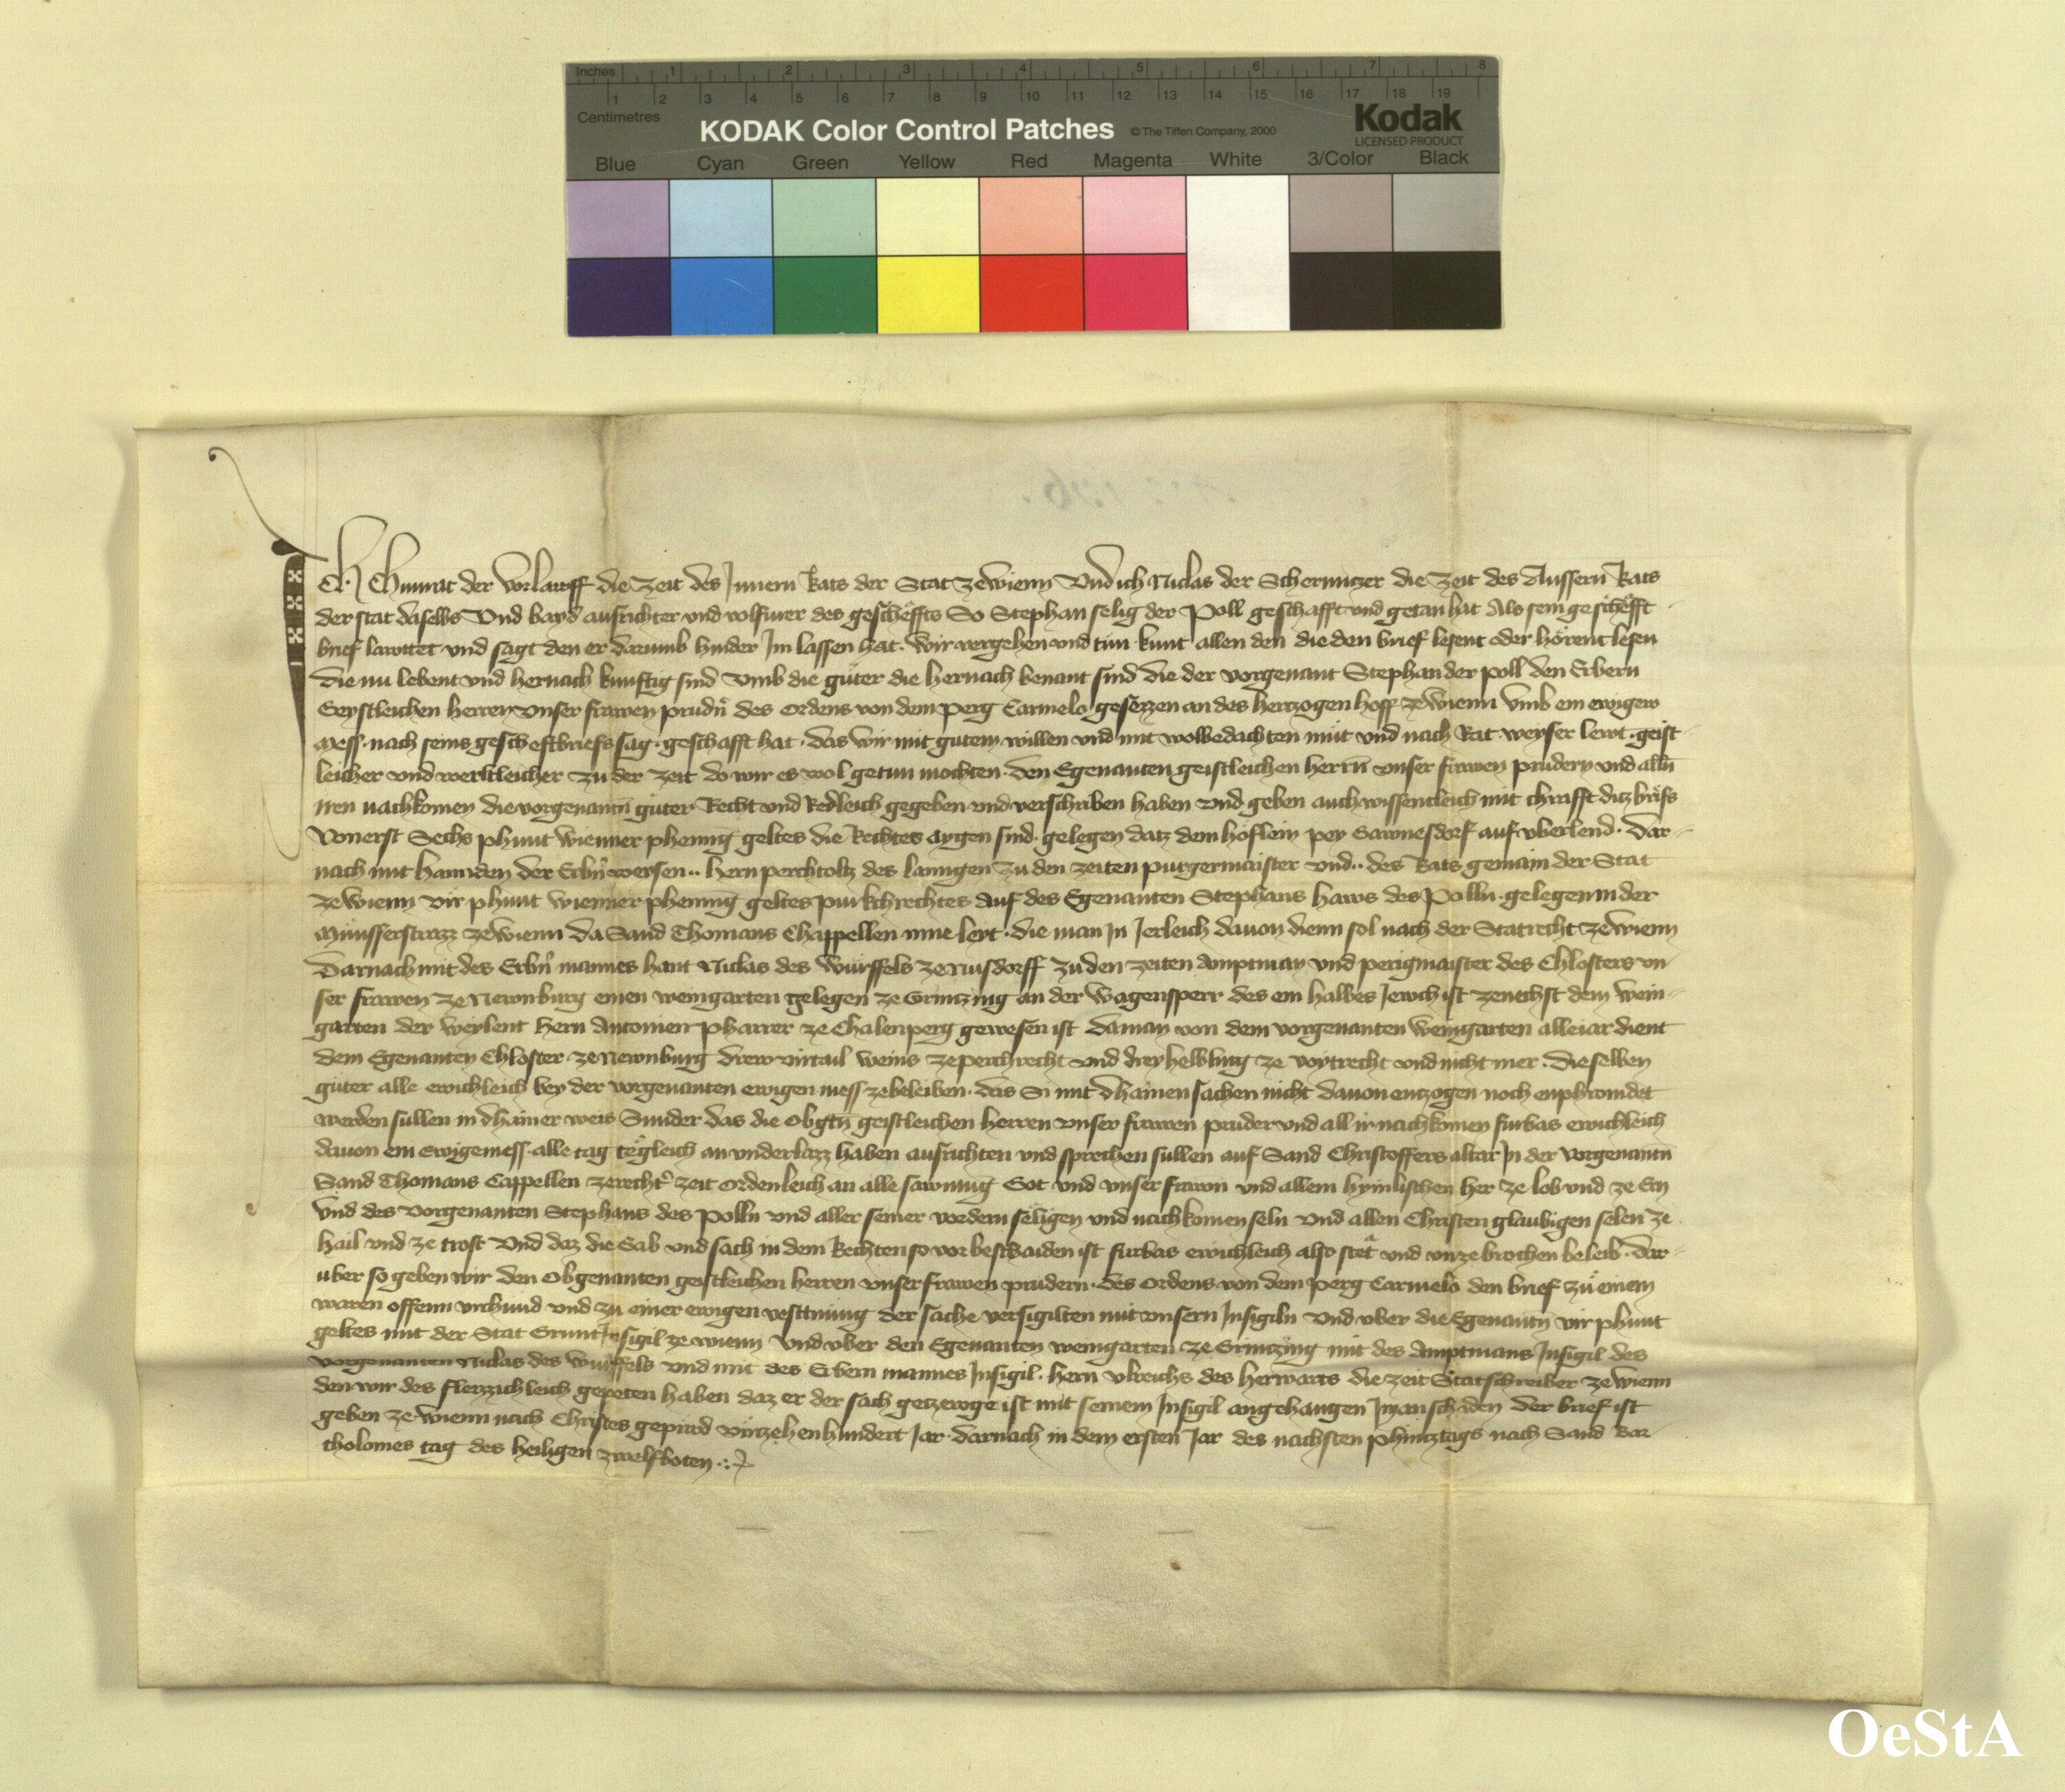 Inches 1 2 3 4 5 6 7 8
1 2 3 4 5 6 7 8 9 10 11 12 13 14 15 16 17 18 19
Centimetres
KODAK Color Control Patches © The Tiffen Company, 2000 Kodak
LICENSED PRODUCT
Blue Cyan Green Yellow Red Magenta White 3/Color Black
Ich Chunrat der Vorlauff die zeit des Innern Rats der Stat ze wienn Und ich Niclas der Schermitzer die zeit des Aussern Rats
der stat daselbs Und bayd ausrichter vnd volfurer des geschêffts So Stephan selig der Poll geschafft vnd getan hat Als sein geschêfft
brief lawttet vnd sagt den er darumb hinder Im lassen hat. Wir vergehen vnd tun kunt allen den die den brief lesent oder hörent lesen
die nu lebent vnd hernach kunftig sind Umb die gûter die hernach benant sind die der vorgenant Stephan der Poll den Erbern
Geystleichen herren vnser frawen prudn̄ des ordens von dem perg Carmelo gesêzzen an des hertzogen hoff ze wienn Umb ein ewigew
mess nach seins gescheftbriefs sag geschafft hat. das wir mit gutem willen vnd mit wolbedachten mût vnd nach Rat weyser lewt geist
leicher vnd werltleicher zu der zeit do wir es wol getun mochten den Egenanten geistleichen herrn̄ vnser frawen prudern vnd alln̄
iren nachkomen die vorgenantn̄ gûter Recht vnd Redleich gegeben vnd verschriben haben vnd geben auch wissentleich mit chrafft ditz briefs
Von erst Sechs phunt wienner phennig geltes die Rechtes aygen sind gelegen datz dem höflein pey Gawnesdorf auf vberlend. dar
nach mit hannden der Erbn̄ weysen .. hern perchtolts des lanngen zu den zeiten purgermaister vnd .. des Rats gemain der Stat
ze wienn vir phunt wienner phenning geltes purkchrechtes auf des Egenanten Stephans haws des Polln. gelegen in der
Münsserstrazz ze wienn da Sand Thomans Chappellen inne leyt. die man In Jerleich dauon dienn sol nach der Statrecht ze wienn
Darnach mit des Erbn̄ mannes hant Niclas des Würffels ze Nusdorff zu den zeiten amptman vnd perigmaister des Chlosters vn
ser frawen ze Newnburg einen weingarten gelegen ze Grintzing an der Wagensperr des ein halbes Jewch ist ze nechst dem wein
garten der weylent hern Antonien pharrer ze Chalenperg gewesen ist da man von dem vorgenanten weingarten alle iar dient
dem Egenanten Chloster ze Newnburg drew virtail weins ze perchrecht vnd drey helbling ze voytrecht vnd nicht mer. dieselben
gûter alle ewichleich bey der vorgenanten ewigen mess ze beleiben. das Si mit dhainen sachen nicht dauon enzogen noch enphrömdet
werden sullen in dhainer weis Sunder das die Obgtn̄ geistleichen herren vnser frawen pruder vnd all ir nachkomen furbas ewichleich
dauon ein ewige mess alle tag têgleich an vnderlazz haben ausrichten vnd sprechen sullen auf Sand Christoffers altar In der vorgenantn̄
Sand Thomans Cappellen ze recht zeit ordenleich an alle sawmung Got vnd vnser frawn vnd allem hymlischen her ze lob vnd ze Ern
Und des vorgenanten Stephans des Polln vnd aller seiner vordern sêligen vnd nachkomen seln vnd allen Christen glaubigen selen ze
hail vnd ze trost Und daz die Gab vnd sach in dem Rechten so vor beschaiden ist furbas ewichleich also stet vnd vnzebrochen beleib. dar
uber so geben wir den Obgenanten geistleichen herren vnser frawen prudern. des ordens von dem perg Carmelo den brief zu einem
waren offenn vrchund vnd zu einer ewigen vesttnung der sache versigilten mit vnsern Insigiln Und vber die Egenantn̄ vir phunt
geltes mit der Stat Grunt Insigil ze wienn Und vber den Egenanten weingarten ze Grintzing mit des Amptmans Insigil des
vorgenanten Niclas des Würffels vnd mit des Erbern mannes Insigil. hern vlreichs des herwarts die zeit Statschreiber ze wienn
den wir des fleizzichleich gepeten haben daz er der sach getzewge ist mit seinem Insigil angehangen Im an schaden Der brief ist
geben ze wienn nach Christes gepurd virzehenhundert Jar darnach in dem ersten Jar des nachsten phintztags nach Sand Bar
tholomes tag des heiligen zwelfboten
OeStA